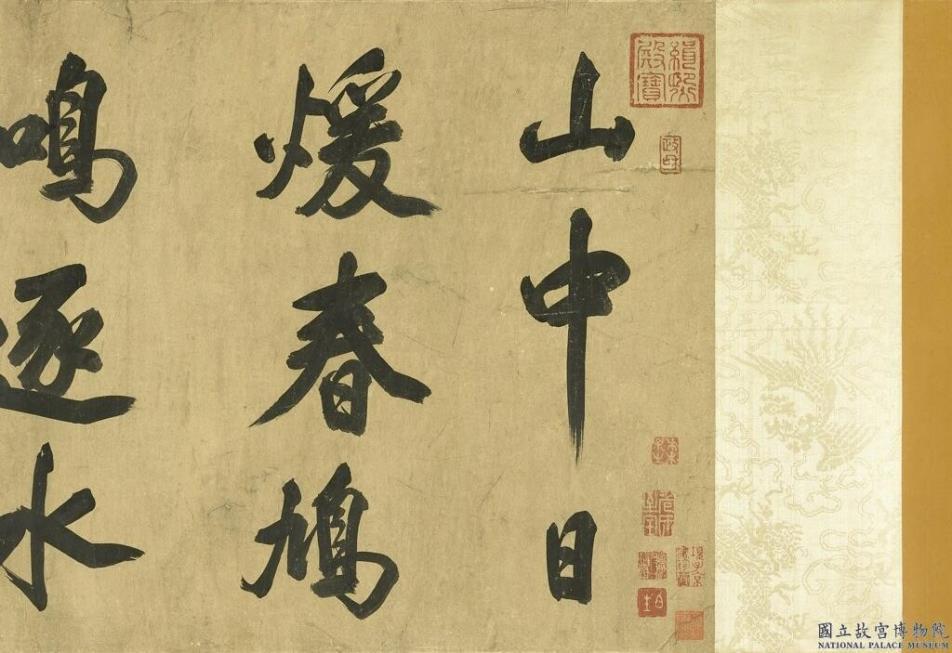 山中日
煖春鳩
鳴逐水
緝熙殿寶
國立故宮博物院
NATIONAL PALACE MUSEUM